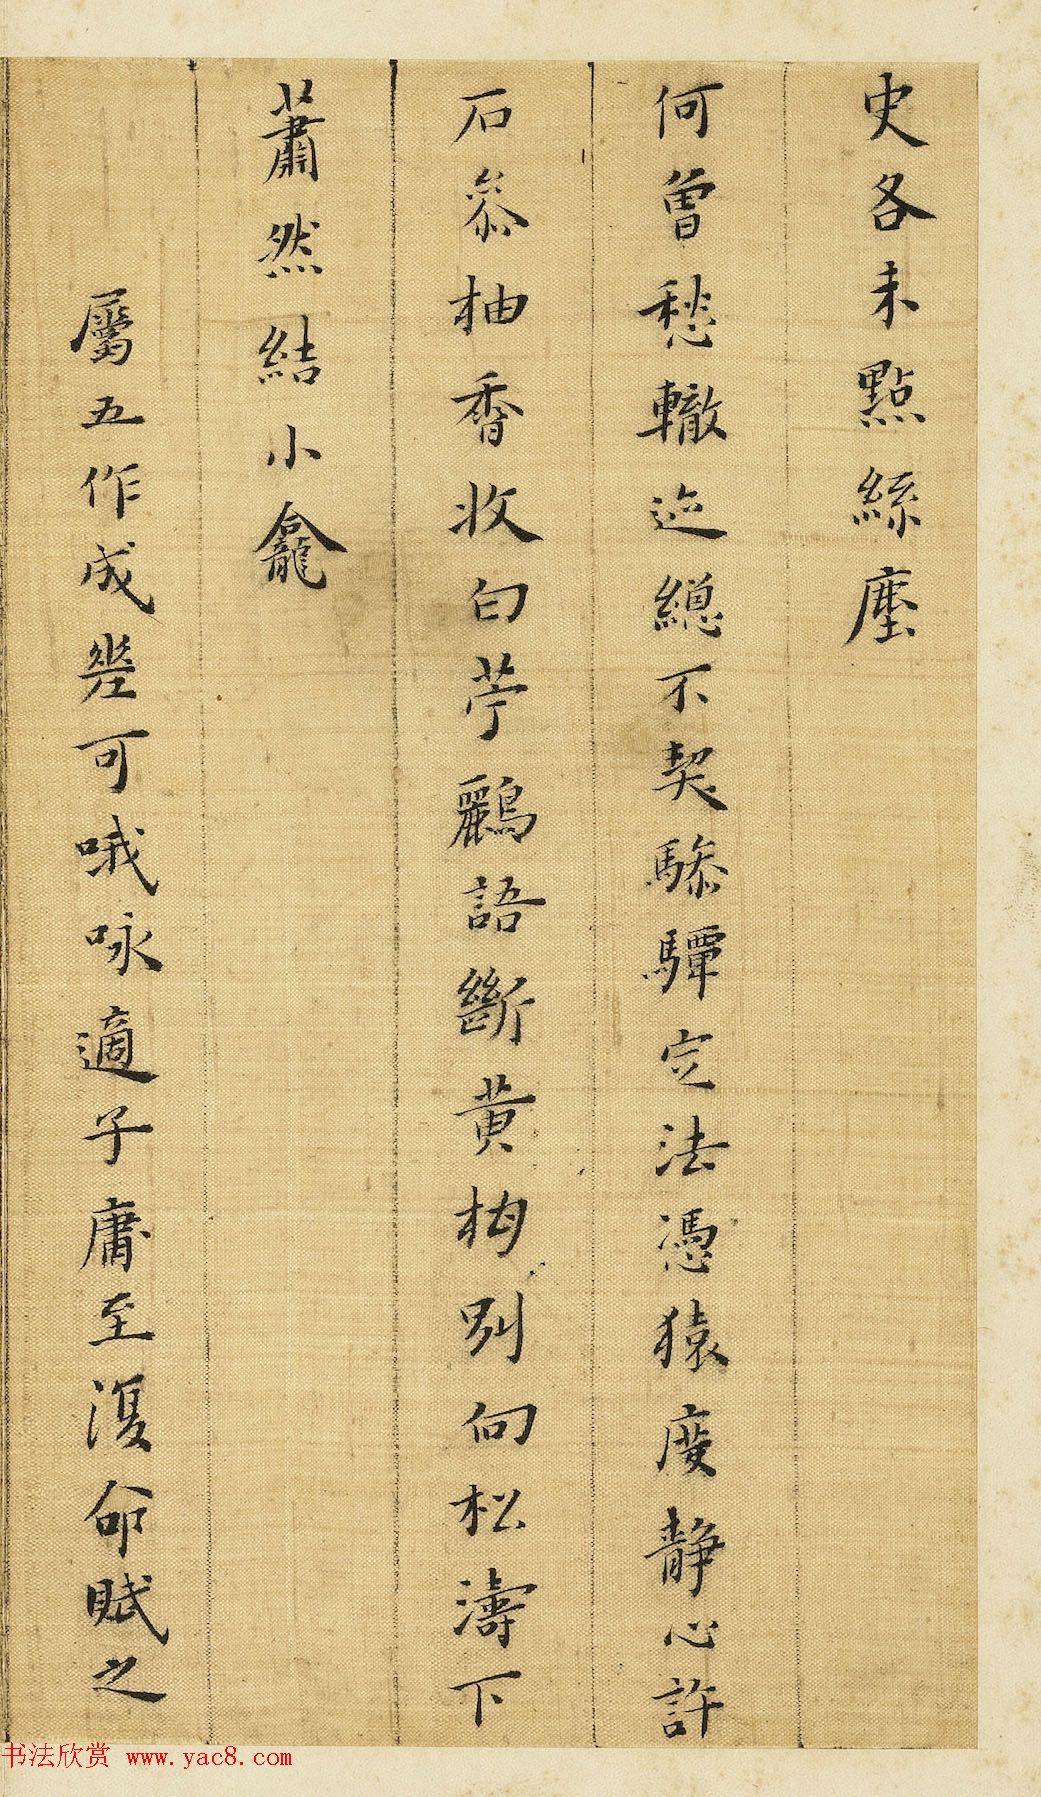 史各未點絲塵
何曾愁轍迹總不契驂驔定法憑猿度靜心許
石參柚香收白苧鸝語斷黃梅別向松濤下
蕭然結小龕
屬五作成差可哦咏適子庸至復命賦之
书法欣赏 www.yac8.com